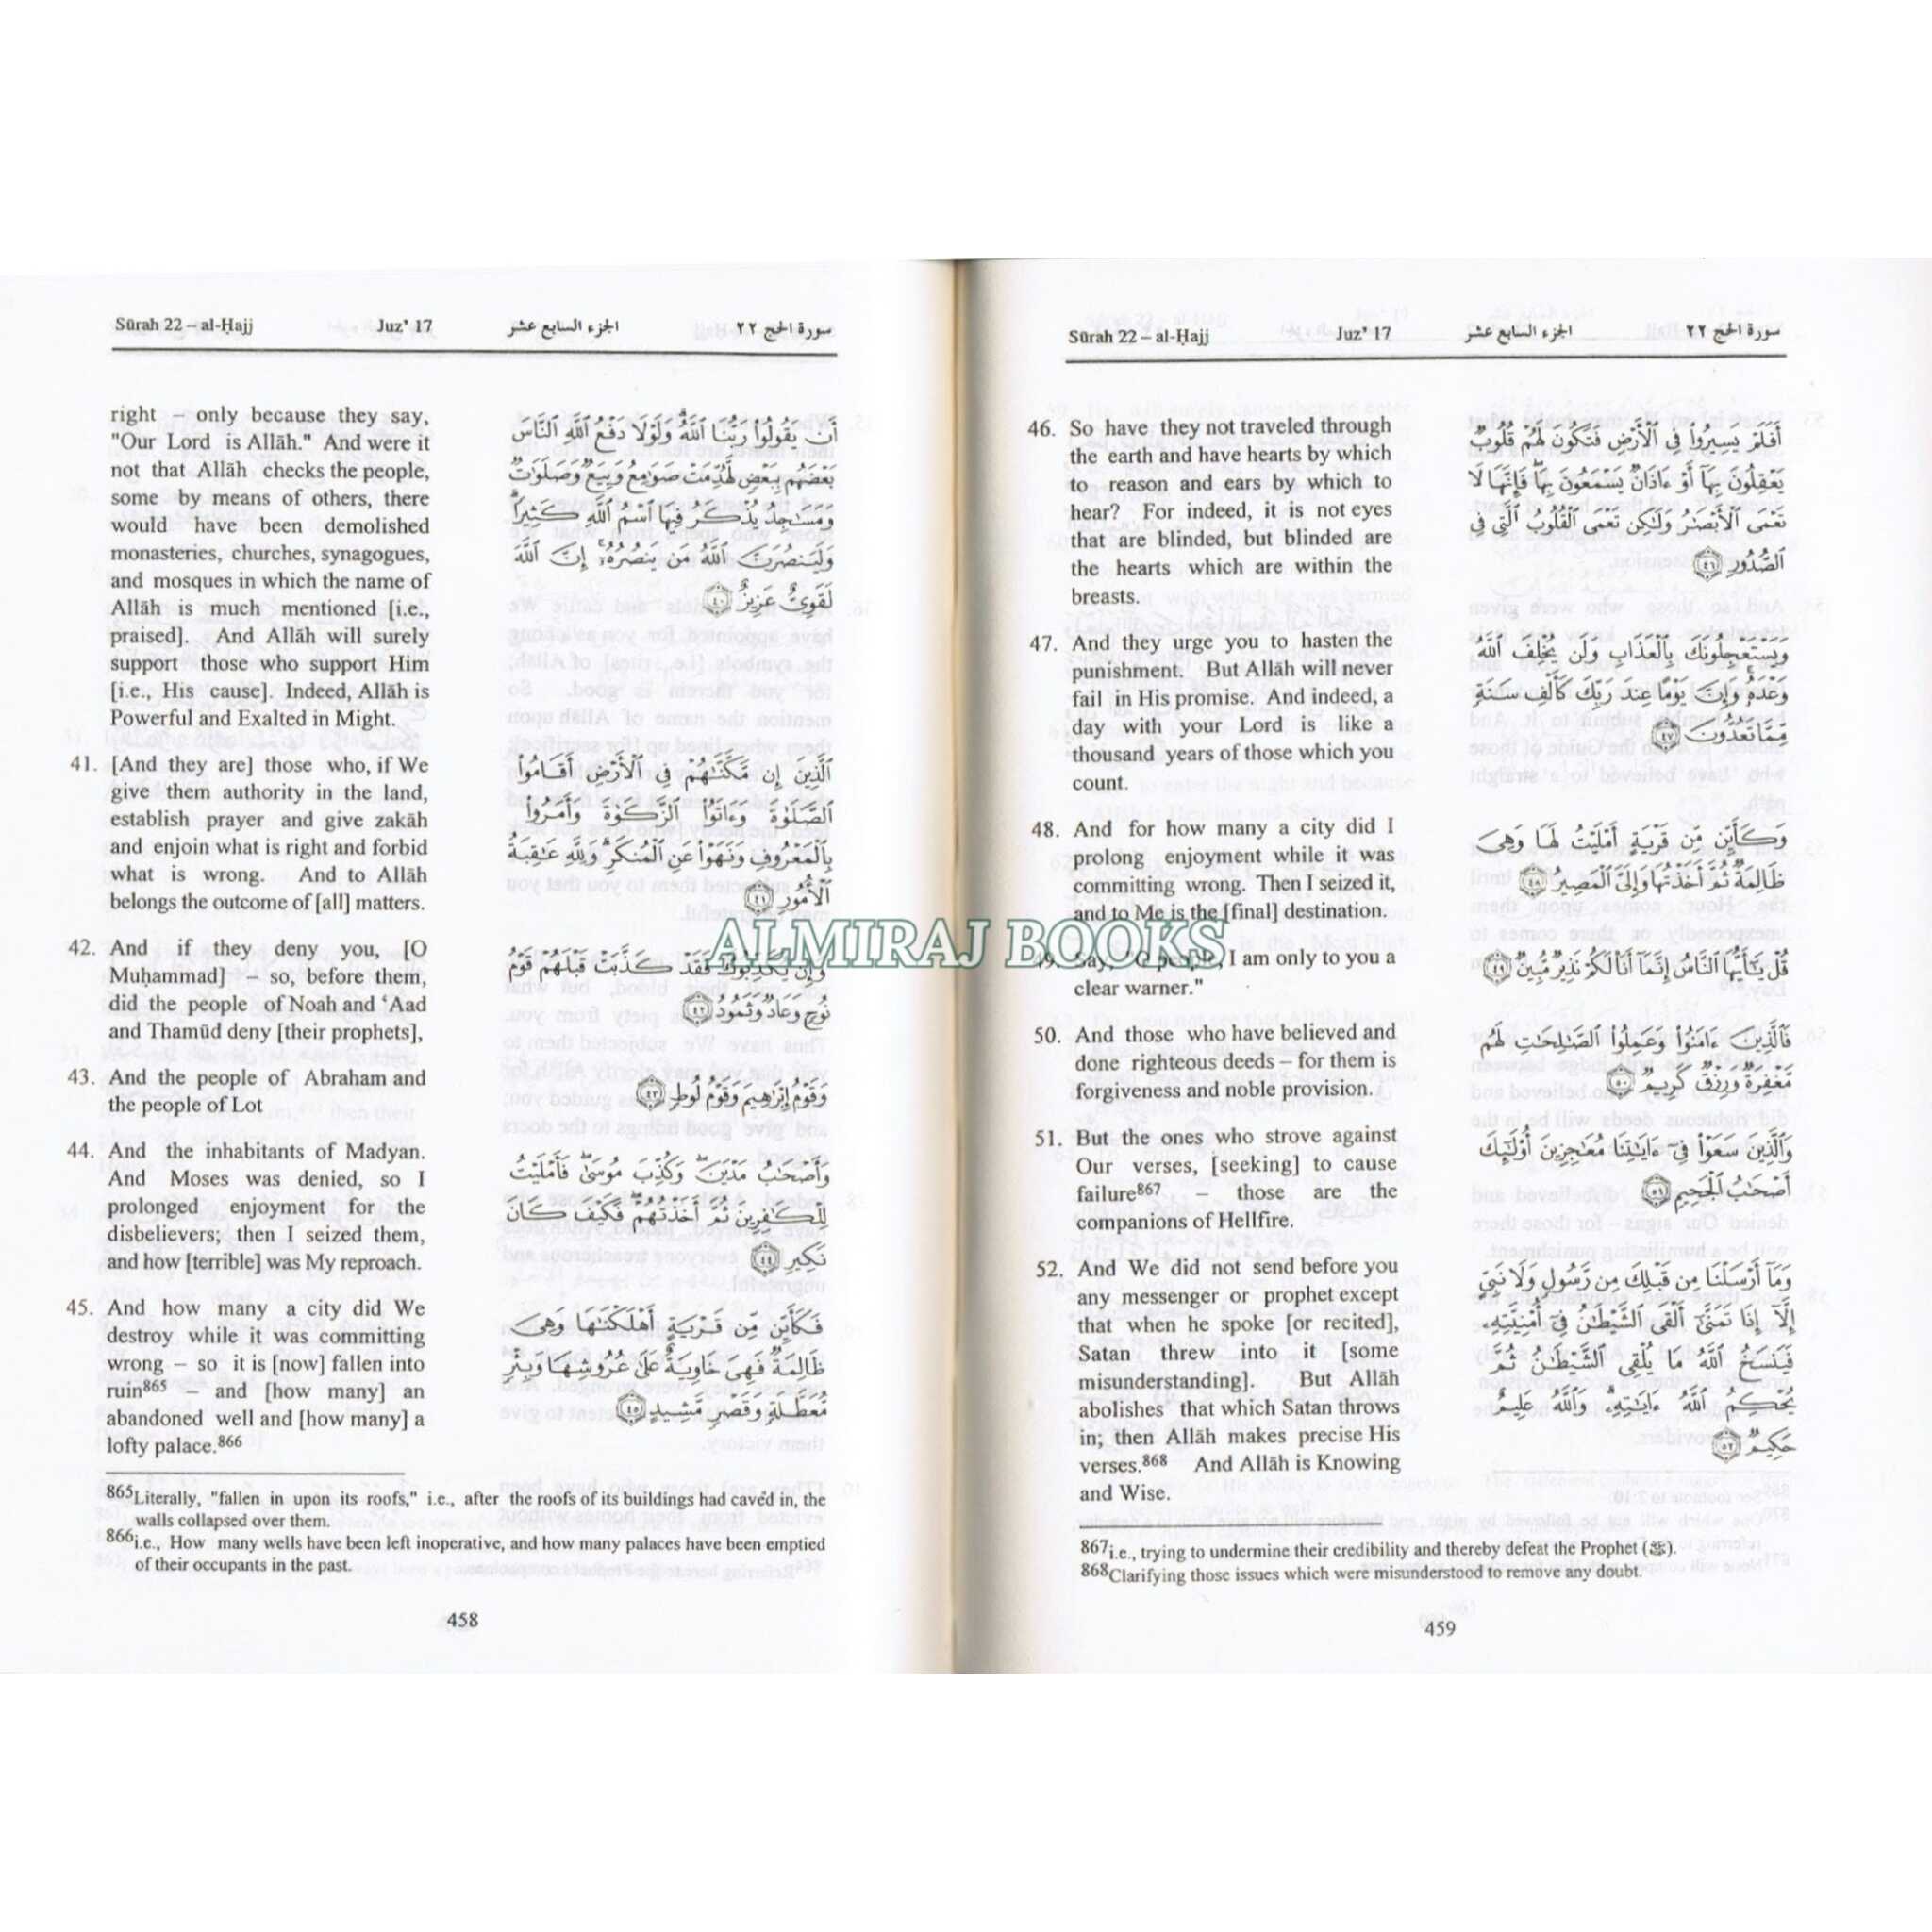 Sūrah 22 – al-Ḥajj Juz' 17 الجزء السابع عشر سورة الحج ٢٢
right – only because they say,
"Our Lord is Allāh." And were it
not that Allāh checks the people,
some by means of others, there
would have been demolished
monasteries, churches, synagogues,
and mosques in which the name of
Allāh is much mentioned [i.e.,
praised]. And Allāh will surely
support those who support Him
[i.e., His cause]. Indeed, Allāh is
Powerful and Exalted in Might.
أَن يَقُولُوا۟ رَبُّنَا ٱللَّهُ وَلَوْلَا دَفْعُ ٱللَّهِ ٱلنَّاسَ
بَعْضَهُم بِبَعْضٍ لَّهُدِّمَتْ صَوَٰمِعُ وَبِيَعٌ وَصَلَوَٰتٌ
وَمَسَٰجِدُ يُذْكَرُ فِيهَا ٱسْمُ ٱللَّهِ كَثِيرًا
وَلَيَنصُرَنَّ ٱللَّهُ مَن يَنصُرُهُۥٓ إِنَّ ٱللَّهَ
لَقَوِىٌّ عَزِيزٌ ٤٠
41. [And they are] those who, if We
give them authority in the land,
establish prayer and give zakāh
and enjoin what is right and forbid
what is wrong. And to Allāh
belongs the outcome of [all] matters.
ٱلَّذِينَ إِن مَّكَّنَّٰهُمْ فِى ٱلْأَرْضِ أَقَامُوا۟
ٱلصَّلَوٰةَ وَءَاتَوُا۟ ٱلزَّكَوٰةَ وَأَمَرُوا۟
بِٱلْمَعْرُوفِ وَنَهَوْا۟ عَنِ ٱلْمُنكَرِ وَلِلَّهِ عَٰقِبَةُ
ٱلْأُمُورِ ٤١
42. And if they deny you, [O
Muḥammad] – so, before them,
did the people of Noah and ‘Aad
and Thamūd deny [their prophets],
وَإِن يُكَذِّبُوكَ فَقَدْ كَذَّبَتْ قَبْلَهُمْ قَوْمُ
نُوحٍ وَعَادٌ وَثَمُودُ ٤٢
43. And the people of Abraham and
the people of Lot
وَقَوْمُ إِبْرَٰهِيمَ وَقَوْمُ لُوطٍ ٤٣
44. And the inhabitants of Madyan.
And Moses was denied, so I
prolonged enjoyment for the
disbelievers; then I seized them,
and how [terrible] was My reproach.
وَأَصْحَٰبُ مَدْيَنَ وَكُذِّبَ مُوسَىٰ فَأَمْلَيْتُ
لِلْكَٰفِرِينَ ثُمَّ أَخَذْتُهُمْ فَكَيْفَ كَانَ
نَكِيرِ ٤٤
45. And how many a city did We
destroy while it was committing
wrong – so it is [now] fallen into
ruin865 – and [how many] an
abandoned well and [how many] a
lofty palace.866
فَكَأَيِّن مِّن قَرْيَةٍ أَهْلَكْنَٰهَا وَهِىَ
ظَالِمَةٌ فَهِىَ خَاوِيَةٌ عَلَىٰ عُرُوشِهَا وَبِئْرٍ
مُّعَطَّلَةٍ وَقَصْرٍ مَّشِيدٍ ٤٥
865Literally, "fallen in upon its roofs," i.e., after the roofs of its buildings had caved in, the
walls collapsed over them.
866i.e., How many wells have been left inoperative, and how many palaces have been emptied
of their occupants in the past.
458
ALMIRAJ BOOKS
Sūrah 22 – al-Ḥajj Juz' 17 الجزء السابع عشر سورة الحج ٢٢
46. So have they not traveled through
the earth and have hearts by which
to reason and ears by which to
hear? For indeed, it is not eyes
that are blinded, but blinded are
the hearts which are within the
breasts.
أَفَلَمْ يَسِيرُوا۟ فِى ٱلْأَرْضِ فَتَكُونَ لَهُمْ قُلُوبٌ
يَعْقِلُونَ بِهَآ أَوْ ءَاذَانٌ يَسْمَعُونَ بِهَا فَإِنَّهَا لَا
تَعْمَى ٱلْأَبْصَٰرُ وَلَٰكِن تَعْمَى ٱلْقُلُوبُ ٱلَّتِى فِى
ٱلصُّدُورِ ٤٦
47. And they urge you to hasten the
punishment. But Allāh will never
fail in His promise. And indeed, a
day with your Lord is like a
thousand years of those which you
count.
وَيَسْتَعْجِلُونَكَ بِٱلْعَذَابِ وَلَن يُخْلِفَ ٱللَّهُ
وَعْدَهُۥ وَإِنَّ يَوْمًا عِندَ رَبِّكَ كَأَلْفِ سَنَةٍ
مِّمَّا تَعُدُّونَ ٤٧
48. And for how many a city did I
prolong enjoyment while it was
committing wrong. Then I seized it,
and to Me is the [final] destination.
وَكَأَيِّن مِّن قَرْيَةٍ أَمْلَيْتُ لَهَا وَهِىَ
ظَالِمَةٌ ثُمَّ أَخَذْتُهَا وَإِلَىَّ ٱلْمَصِيرُ ٤٨
49. Say, "O people, I am only to you a
clear warner."
قُلْ يَٰٓأَيُّهَا ٱلنَّاسُ إِنَّمَآ أَنَا۠ لَكُمْ نَذِيرٌ مُّبِينٌ ٤٩
50. And those who have believed and
done righteous deeds – for them is
forgiveness and noble provision.
فَٱلَّذِينَ ءَامَنُوا۟ وَعَمِلُوا۟ ٱلصَّٰلِحَٰتِ لَهُم
مَّغْفِرَةٌ وَرِزْقٌ كَرِيمٌ ٥٠
51. But the ones who strove against
Our verses, [seeking] to cause
failure867 – those are the
companions of Hellfire.
وَٱلَّذِينَ سَعَوْا۟ فِىٓ ءَايَٰتِنَا مُعَٰجِزِينَ أُو۟لَٰٓئِكَ
أَصْحَٰبُ ٱلْجَحِيمِ ٥١
52. And We did not send before you
any messenger or prophet except
that when he spoke [or recited],
Satan threw into it [some
misunderstanding]. But Allāh
abolishes that which Satan throws
in; then Allāh makes precise His
verses.868 And Allāh is Knowing
and Wise.
وَمَآ أَرْسَلْنَا مِن قَبْلِكَ مِن رَّسُولٍ وَلَا نَبِىٍّ
إِلَّآ إِذَا تَمَنَّىٰٓ أَلْقَى ٱلشَّيْطَٰنُ فِىٓ أُمْنِيَّتِهِۦ
فَيَنسَخُ ٱللَّهُ مَا يُلْقِى ٱلشَّيْطَٰنُ ثُمَّ
يُحْكِمُ ٱللَّهُ ءَايَٰتِهِۦ وَٱللَّهُ عَلِيمٌ
حَكِيمٌ ٥٢
867i.e., trying to undermine their credibility and thereby defeat the Prophet (ﷺ).
868Clarifying those issues which were misunderstood to remove any doubt.
459